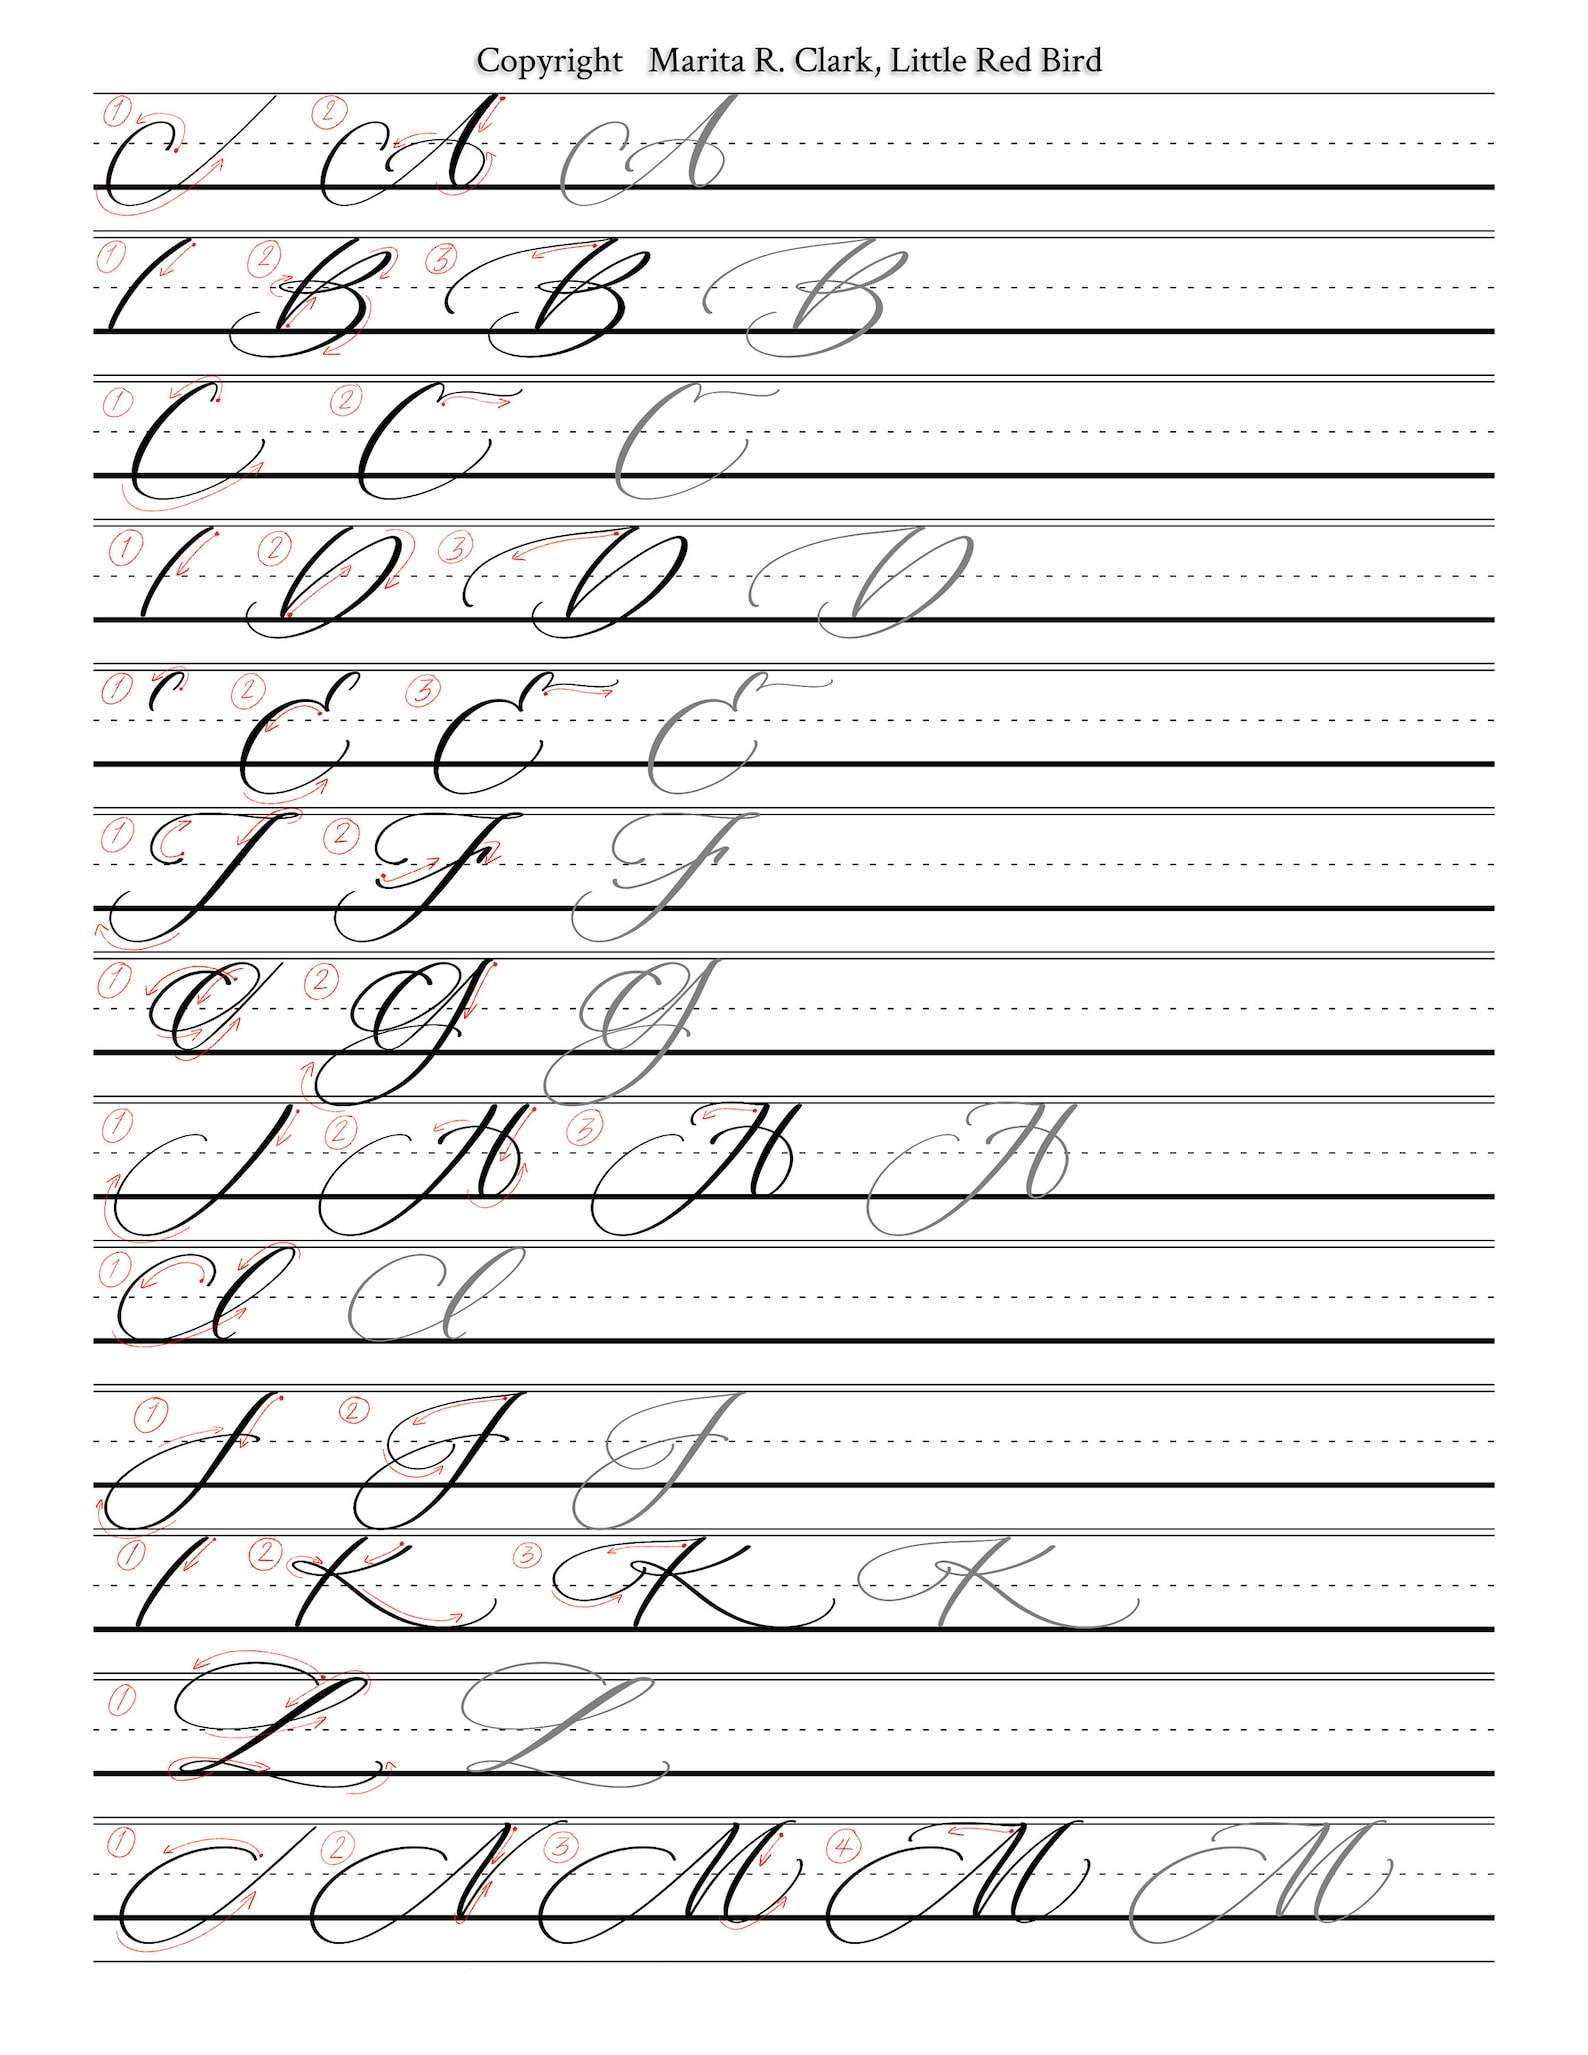 Copyright Marita R. Clark, Little Red Bird
1 2 A A
1 2 B 3 B B
1 C 2 C C
1 2 D 3 D D
1 2 E 3 E E
1 2 F F
1 2 G G
1 2 H 3 H H
1 I I
1 J 2 J J
1 2 K 3 K K
1 L L
1 2 N 3 M 4 M M